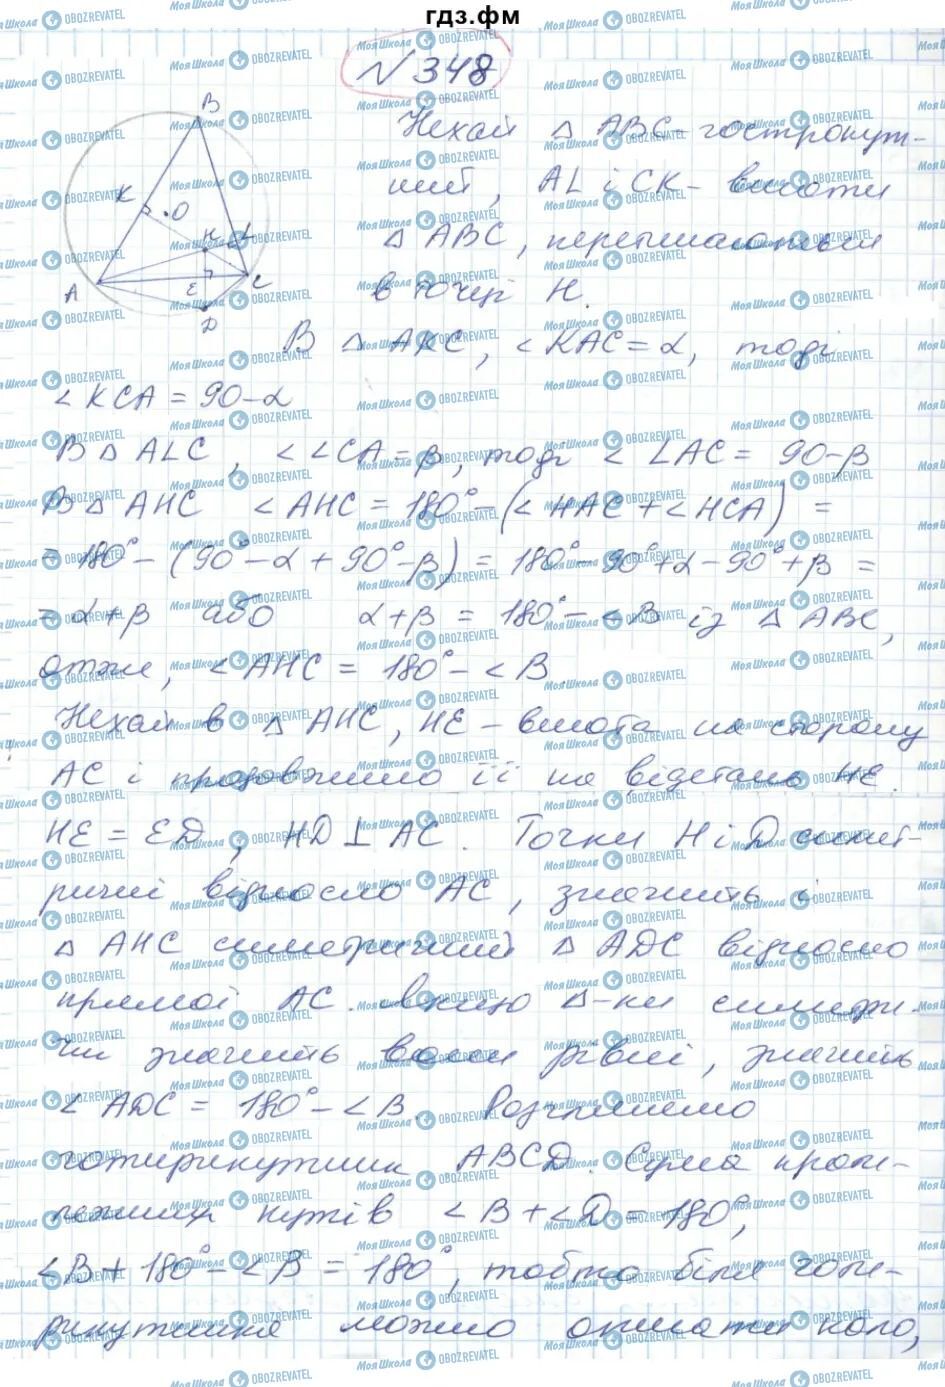 гдз.фм
№ 348
Нехай △ ABC - гострокут-
ний, AL і CK - висоти
△ ABC, перетинаються
в точці H.
В △ AKC, ∠KAC = α, тоді
∠KCA = 90-α
В △ ALC, ∠LCA = β, тоді ∠LAC = 90-β
В △ AHC ∠AHC = 180° - (∠HAC + ∠HCA) =
= 180° - (90° - α + 90° - β) = 180° - 90° + α - 90° + β =
= α + β або α + β = 180° - ∠B із △ ABC,
отже, ∠AHC = 180° - ∠B
Нехай в △ AHC, HE - висота на сторону
AC і продовжимо її на відстань HE.
HE = ED, HD ⊥ AC. Точки H і D симет-
ричні відносно AC, значить і
△ AHC симетричний △ ADC відносно
прямої AC. Якщо △-ки симетри-
чні значить вони рівні, значить
∠ADC = 180° - ∠B. Розглянемо
чотирикутник ABCD. Сума проти-
лежних кутів ∠B + ∠D = 180°,
∠B + 180° - ∠B = 180°, тобто біля чоти-
рикутника можно описати коло,
B
K
O
H
L
A
E
C
D